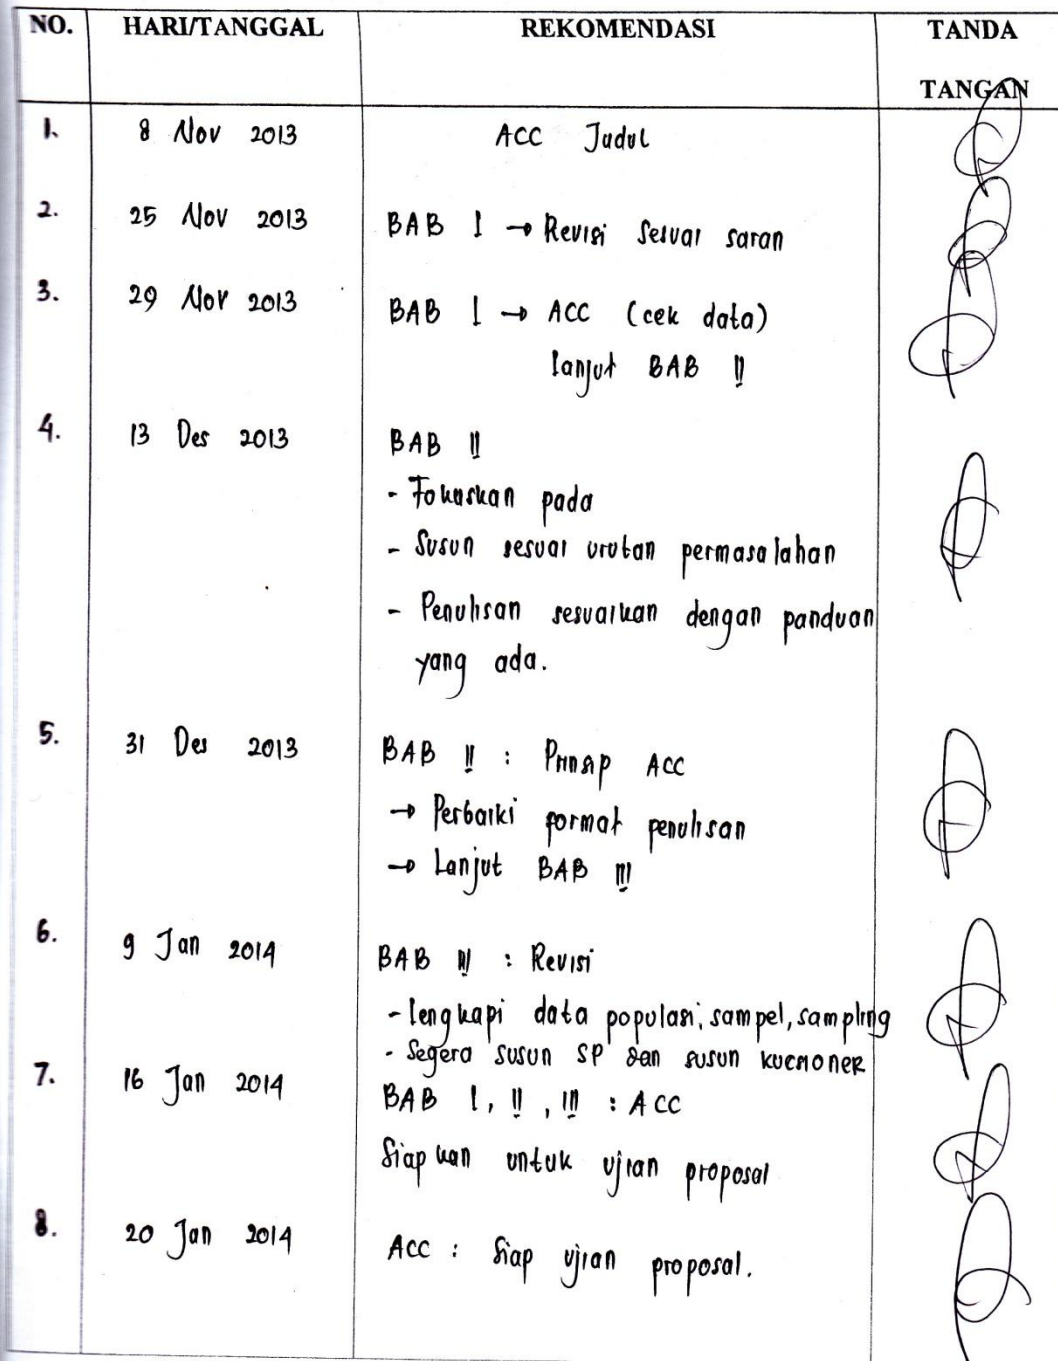 NO. HARI/TANGGAL REKOMENDASI TANDA TANGAN
1. 8 Nov 2013 ACC Judul
2. 25 Nov 2013 BAB I → Revisi sesuai saran
3. 29 Nov 2013 BAB I → ACC (cek data)
lanjut BAB II
4. 13 Des 2013 BAB II
- Fokuskan pada
- Susun sesuai urutan permasalahan
- Penulisan sesuaikan dengan panduan
yang ada.
5. 31 Des 2013 BAB II : Prinsip ACC
→ Perbaiki format penulisan
→ Lanjut BAB III
6. 9 Jan 2014 BAB III : Revisi
- lengkapi data populasi, sampel, sampling
- Segera susun SP dan susun kuesioner
7. 16 Jan 2014 BAB I, II, III : ACC
Siapkan untuk ujian proposal
8. 20 Jan 2014 ACC : Siap ujian proposal.